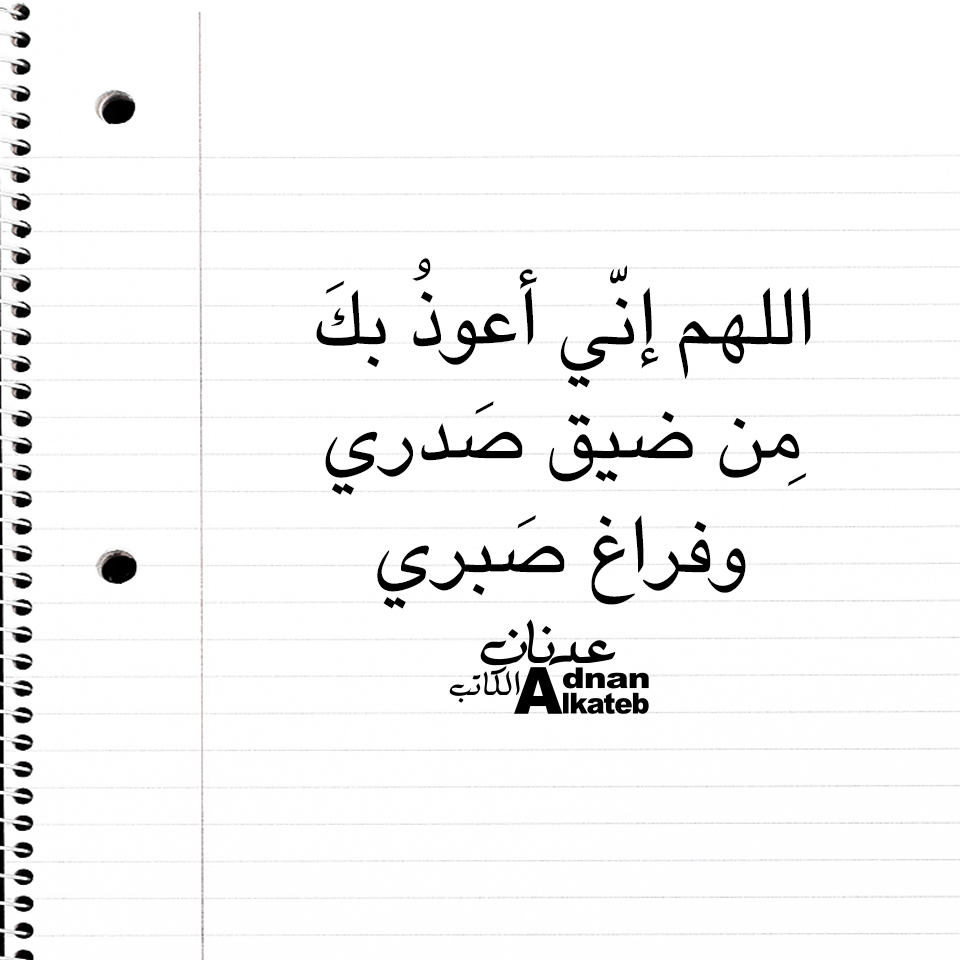 اللهم إنّي أعوذُ بكَ
مِن ضيق صَدري
وفراغ صَبري
عدنان
الكاتب
Adnan
Alkateb